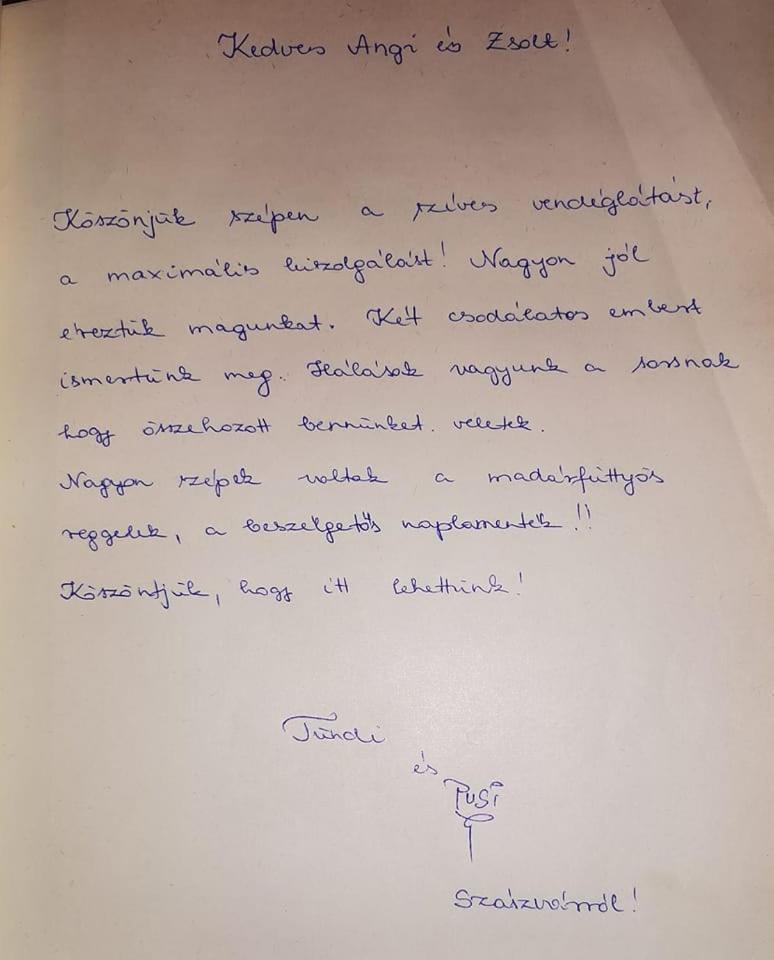 Kedves Angi és Zsolt!
Köszönjük szépen a szíves vendéglátást,
a maximális kiszolgálást! Nagyon jól
éreztük magunkat. Két csodálatos embert
ismertünk meg. Hálások vagyunk a sorsnak
hogy összehozott bennünket veletek.
Nagyon szépek voltak a madárfüttyös
reggelek, a beszélgetős naplamenték!!
Köszöntjük, hogy itt lehettünk!
Tündi
és
Pusi
Szászvárról!